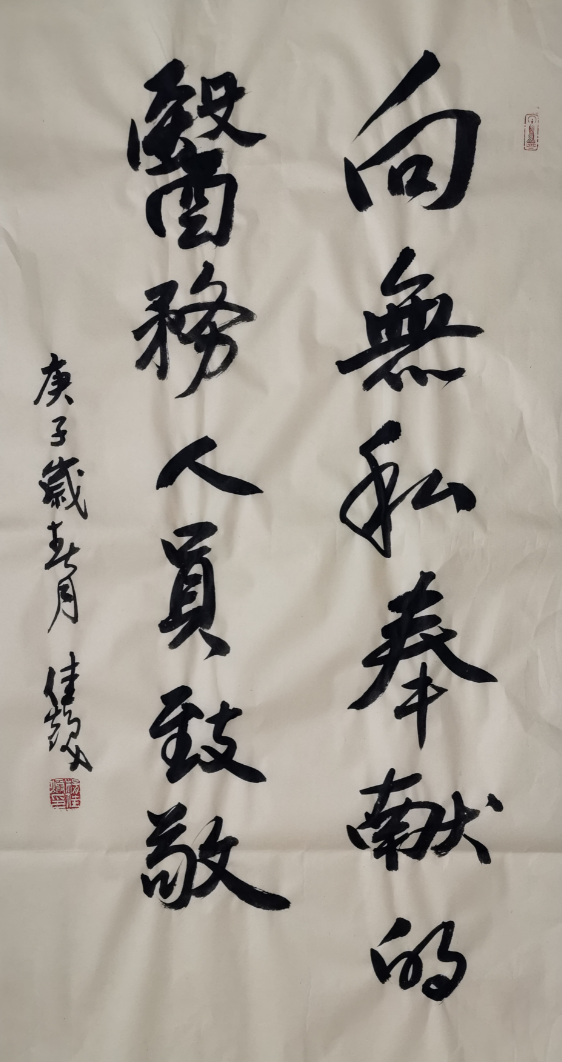 向無私奉献的
醫務人員致敬
庚子歲春月 佳